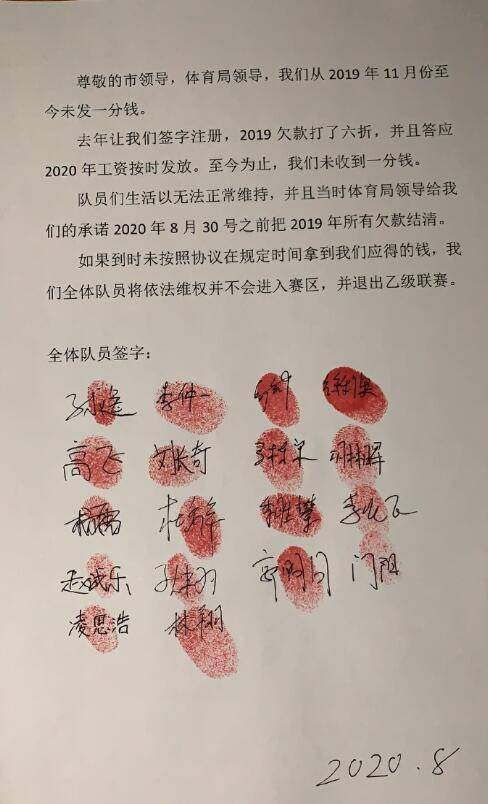 尊敬的市领导，体育局领导，我们从 2019 年 11 月份至
今未发一分钱。
去年让我们签字注册，2019 欠款打了六折，并且答应
2020 年工资按时发放。至今为止，我们未收到一分钱。
队员们生活以无法正常维持，并且当时体育局领导给我
们的承诺 2020 年 8 月 30 号之前把 2019 年所有欠款结清。
如果到时未按照协议在规定时间拿到我们应得的钱，我
们全体队员将依法维权并不会进入赛区，并退出乙级联赛。
全体队员签字：
李仲一
高飞 刘长奇
门阳
凌思浩 林翔
2020.8